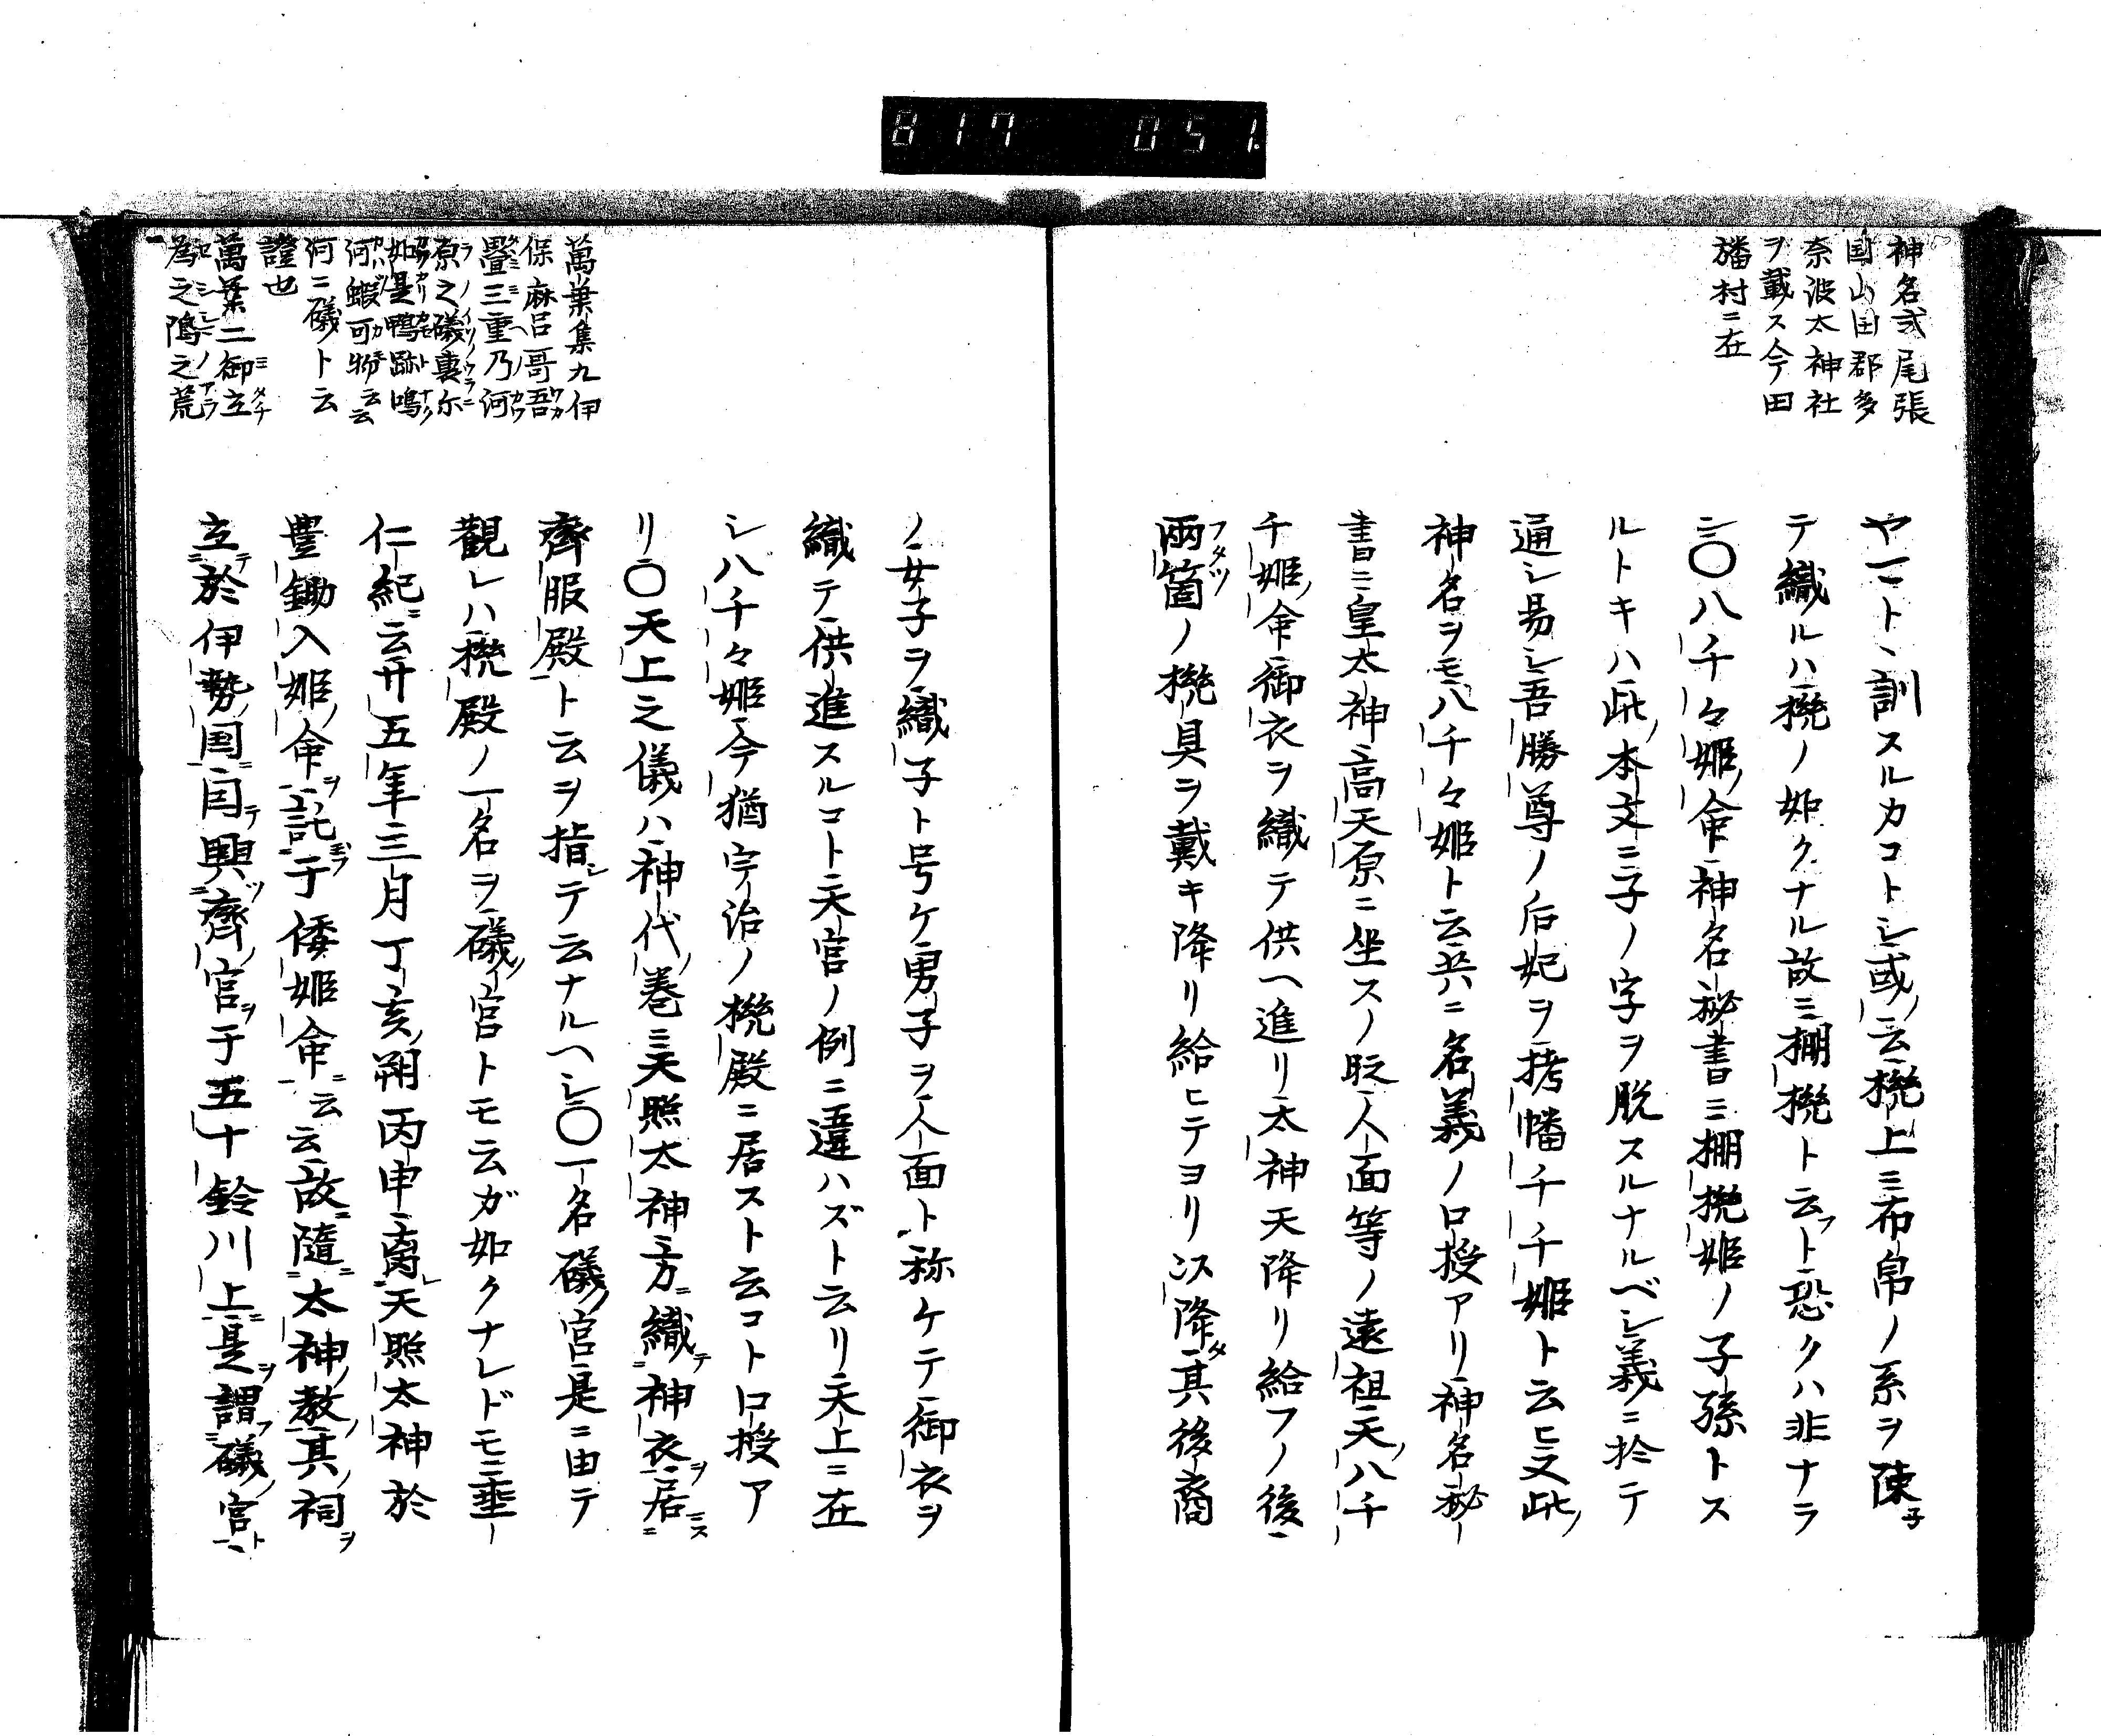 817 051
神名式尾張
国山田郡多
奈波太神社
ヲ載ス今田
旙村ニ在
ヤマト丶訓スルカコトシ或云機上ニ布帛ノ系ヲ陳子
テ織ルハ機ノ如クナル故ニ棚機ト云フト恐クハ非ナラ
シ〇八千々姫命神名秘書ニ棚機姫ノ子孫トス
ルトキハ此本文ニ子ノ字ヲ脱スルナルベシ義ニ於テ
通シ易シ吾勝尊ノ后妃ヲ栲幡千千姫ト云ヒ又此
神名ヲモ八千々姫ト云共ニ名義ノ口授アリ神名秘
書ニ皇太神高天原ニ坐スノ時人面等ノ遠祖天八千
千姫命御衣ヲ織テ供ヘ進リ太神天降リ給フノ後
兩箇ノ機具ヲ戴キ降リ給ヒテヨリ以降其後裔
萬葉集九伊
保麻呂哥吾
疊三重乃河
原之礒裏尓
如是鴨跡鳴
河蝦可物云云
河ニ礒ト云
證也
萬葉二御立
為之隝之荒
ノ女子ヲ織子ト号ケ男子ヲ人面ト称ケテ御衣ヲ
織テ供進スルコト天宮ノ例ニ違ハズト云リ天上ニ在
シ八千々姫今猶宇治ノ機殿ニ居スト云コト口授ア
リ〇天上之儀ハ神代巻ニ天照太神方織神衣居
齊服殿ト云ヲ指テ云ナルヘシ〇一名礒宮是ニ由テ
觀レハ機殿ノ一名ヲ礒宮トモ云ガ如クナレドモ垂
仁紀云廿五年三月丁亥朔丙申离天照太神於
豊鋤入姫命託于倭姫命云云故隨太神教其祠
立於伊勢国因興齊宮于五十鈴川上是謂礒宮